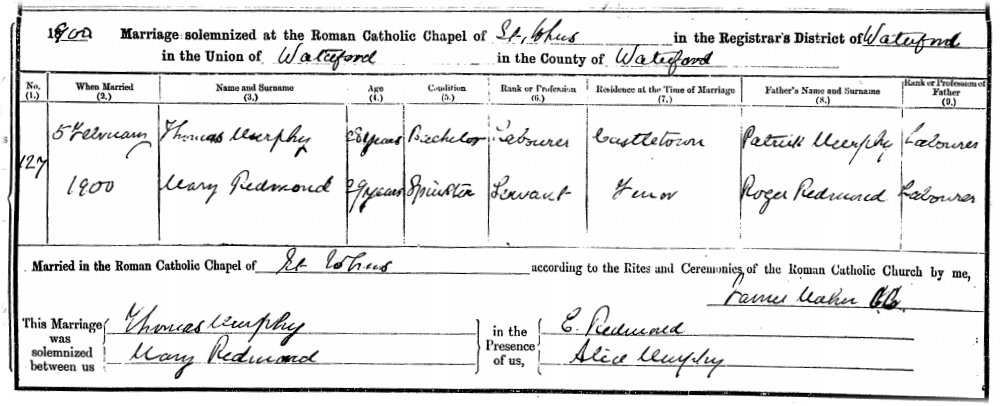 1900 Marriage solemnized at the Roman Catholic Chapel of St. Johns in the Registrar's District of Waterford
in the Union of Waterford in the County of Waterford
No. (1.) When Married (2.) Name and Surname (3.) Age (4.) Condition (5.) Rank or Profession (6.) Residence at the Time of Marriage (7.) Father's Name and Surname (8.) Rank or Profession of Father (9.)
5 February Thomas Murphy 28 years Bachelor Labourer Castletown Patrick Murphy Labourer
127
1900 Mary Redmond 29 years Spinster Servant Fenor Roger Redmond Labourer
Married in the Roman Catholic Chapel of St Johns according to the Rites and Ceremonies of the Roman Catholic Church by me,
C.C.
This Marriage was solemnized between us
Thomas Murphy
Mary Redmond
in the Presence of us,
E. Redmond
Alice Murphy